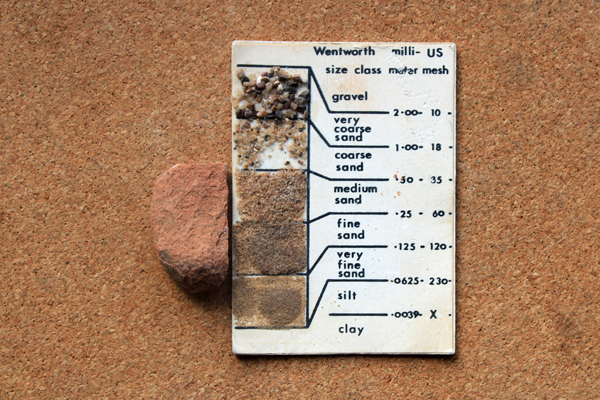 Wentworth milli- US
size class meter mesh
gravel
2.00- 10 -
very
coarse
sand
1.00 - 18 -
coarse
sand
.50 - 35 -
medium
sand
.25 - 60 -
fine
sand
.125 - 120 -
very
fine
sand
.0625- 230 -
silt
.0039- X -
clay